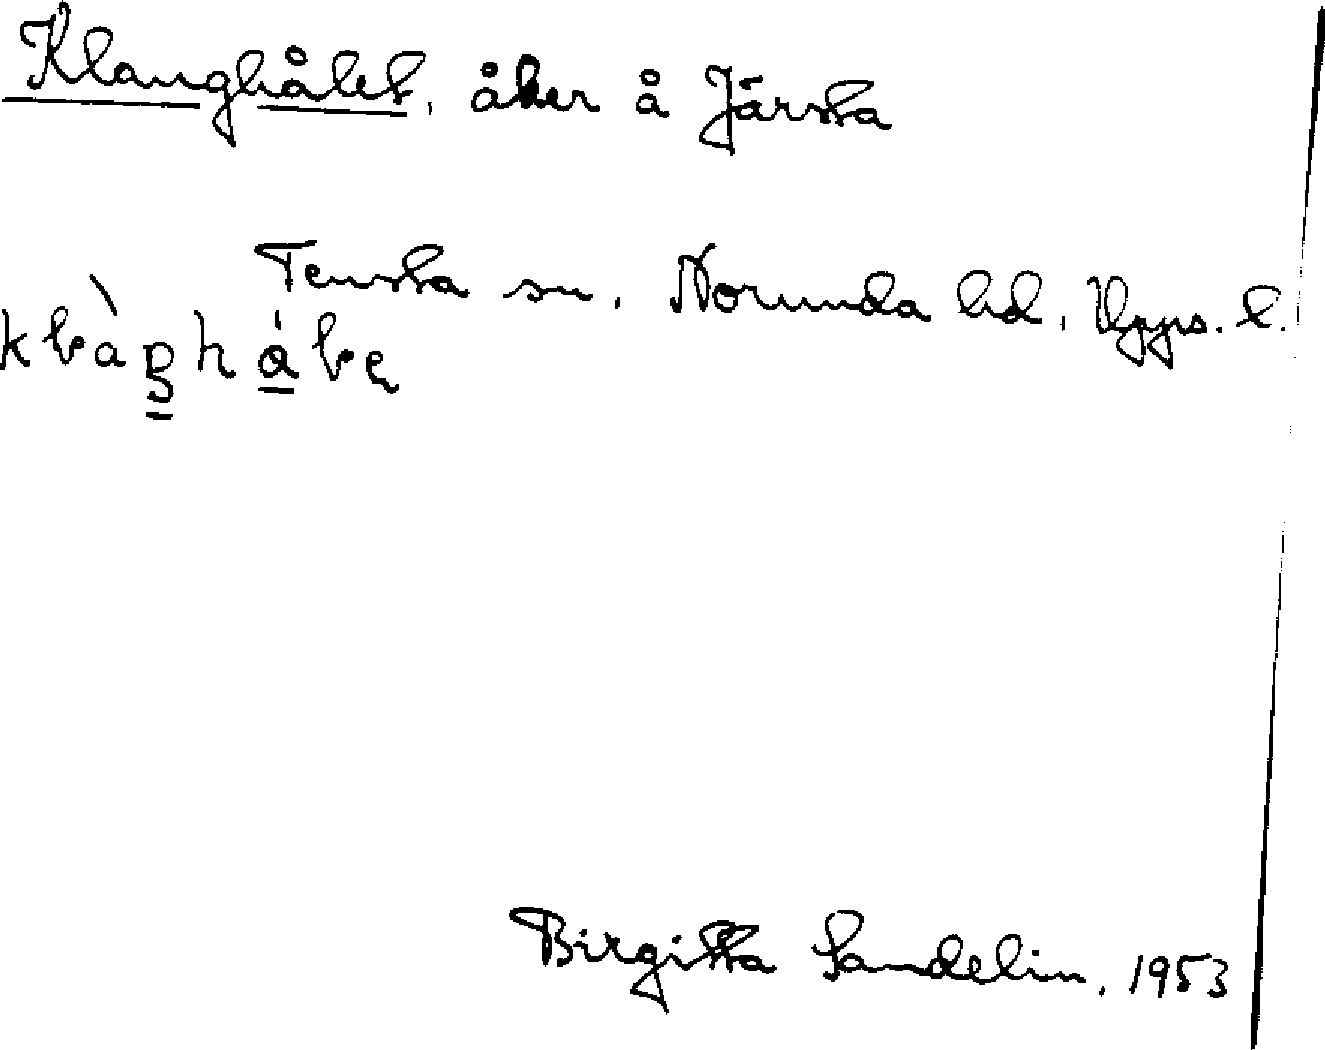 Klanghålet, åker å Järsta
Tensta sn, Norunda hd, Upps. l.
Birgitta Sandelin, 1953